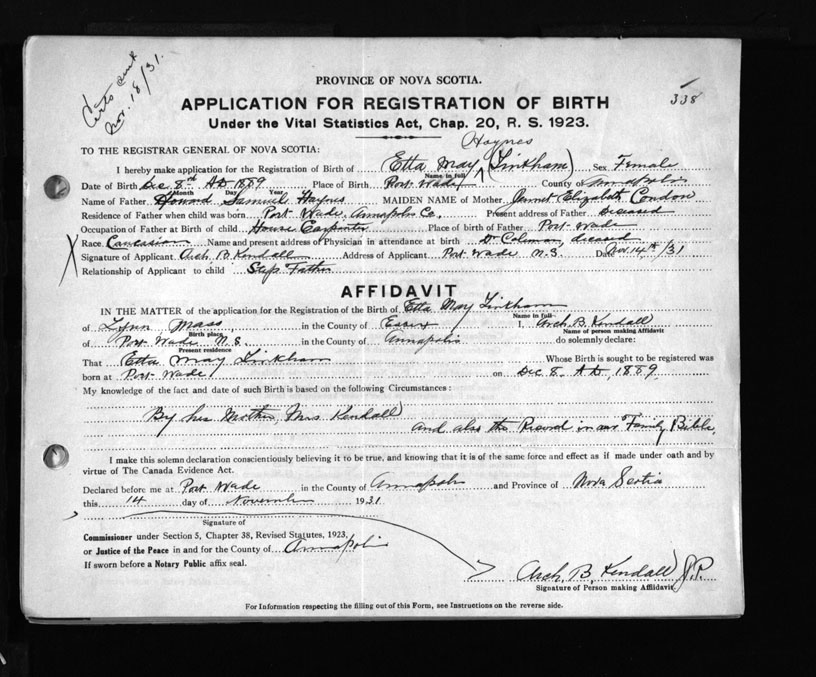 Certs sent
Nov. 18/31.
338
PROVINCE OF NOVA SCOTIA.
APPLICATION FOR REGISTRATION OF BIRTH
Under the Vital Statistics Act, Chap. 20, R. S. 1923.
Haynes
TO THE REGISTRAR GENERAL OF NOVA SCOTIA:
I hereby make application for the Registration of Birth of Etta May (Linkham) Sex Female
Name in full
Date of Birth Dec 8th AD 1889 Place of Birth Port Wade County of Annapolis
Month Day Year
Name of Father Howard Samuel Haynes MAIDEN NAME of Mother Elizabeth Condon
Residence of Father when child was born Port Wade Annapolis Co. Present address of Father Deceased
Occupation of Father at Birth of child House Carpenter Place of birth of Father Port Wade
Race Caucasian Name and present address of Physician in attendance at birth Dr Coleman, deceased
Signature of Applicant Arch B Kendall Address of Applicant Port Wade N.S. Date Nov 14th/31
Relationship of Applicant to child Step Father
AFFIDAVIT
IN THE MATTER of the application for the Registration of the Birth of Etta May Linkham
Name in full
of Lynn Mass in the County of Essex I, Arch. B. Kendall
Birth place Name of person making Affidavit
of Port Wade N.S in the County of Annapolis do solemnly declare:
Present residence
That Etta May Linkham Whose Birth is sought to be registered was
born at Port Wade on Dec 8. AD, 1889
My knowledge of the fact and date of such Birth is based on the following Circumstances:
By her Mother, Mrs Kendall
and also the Record in our Family Bible
I make this solemn declaration conscientiously believing it to be true, and knowing that it is of the same force and effect as if made under oath and by
virtue of The Canada Evidence Act.
Declared before me at Port Wade in the County of Annapolis and Province of Nova Scotia
this 14 day of November 1931
Signature of
Commissioner under Section 5, Chapter 38, Revised Statutes, 1923,
or Justice of the Peace in and for the County of Annapolis
If sworn before a Notary Public affix seal.
Arch. B. Kendall J.P.
Signature of Person making Affidavit.
For Information respecting the filling out of this Form, see Instructions on the reverse side.